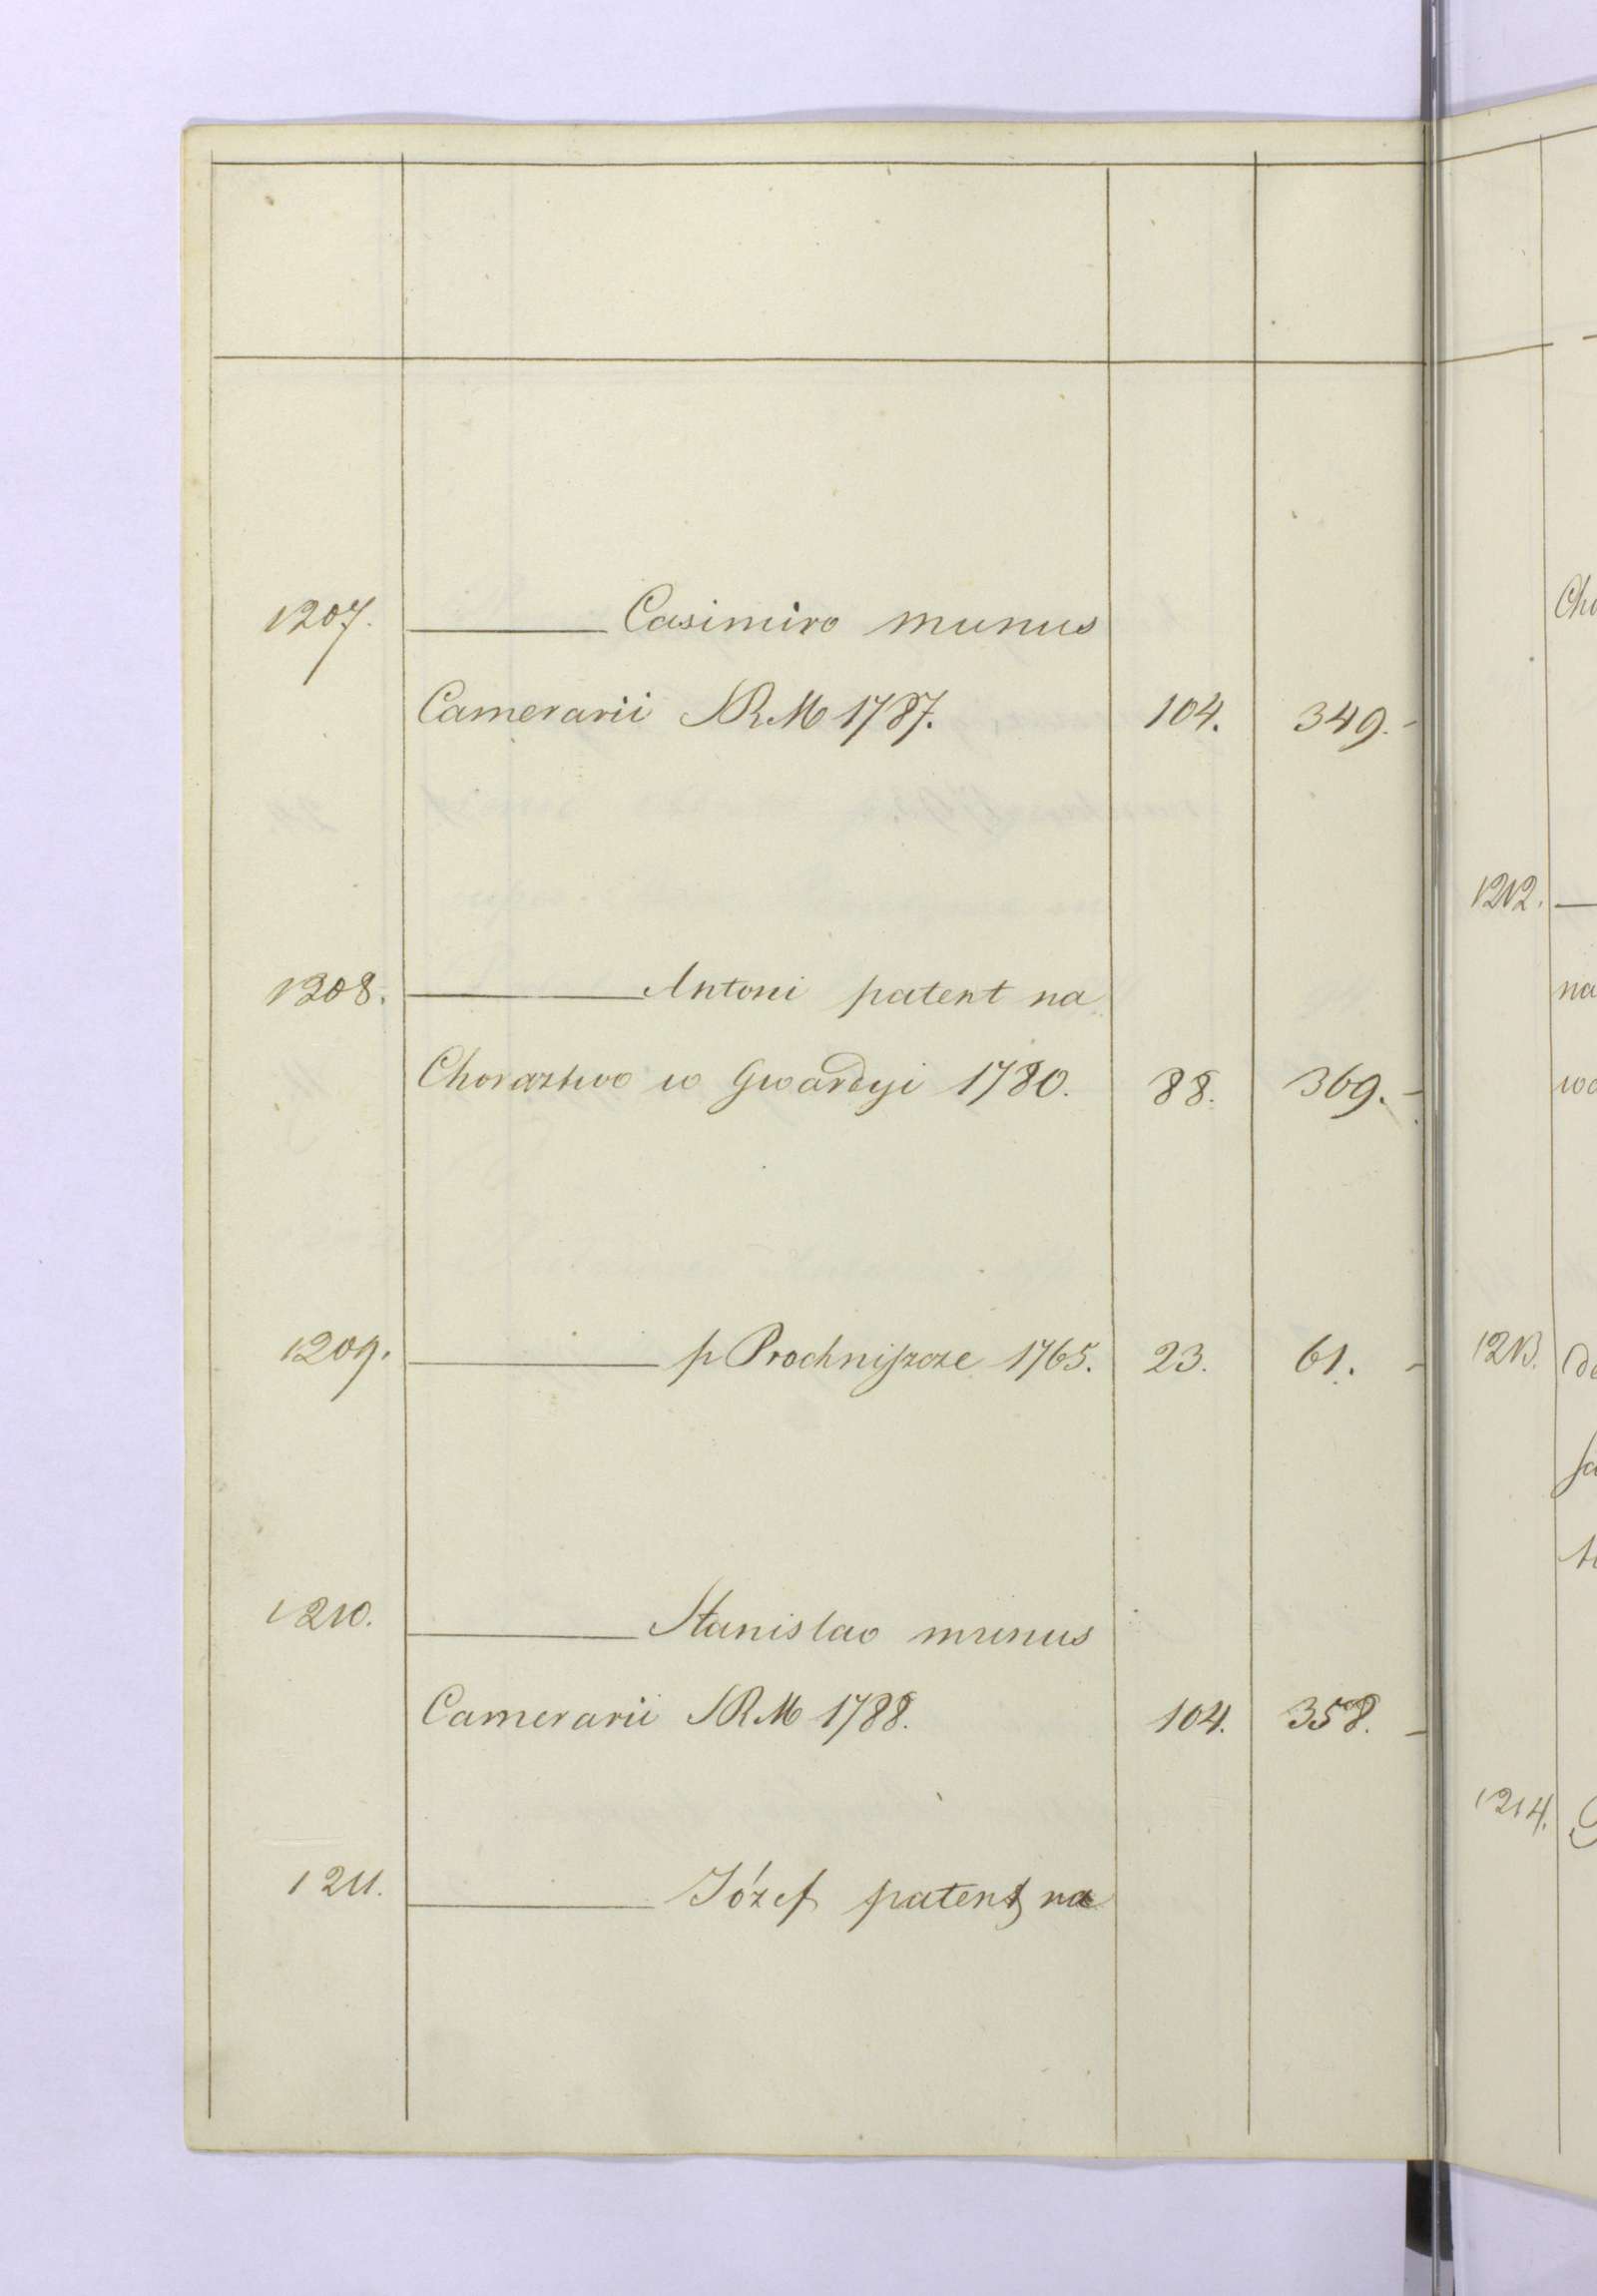 1207. Casimiro munus
Camerarii SRM 1787. 104. 349.-
1208. Antoni patent na
Chorąztwo w Gwardyi 1780. 88. 369.-
1209. p Prochniszcze 1765. 23. 61. -
1210. Stanislao munus
Camerarii SRM 1788. 104. 358. -
1211. Józef patent na
Cho
1212.
na
wo
1213. de
1214.